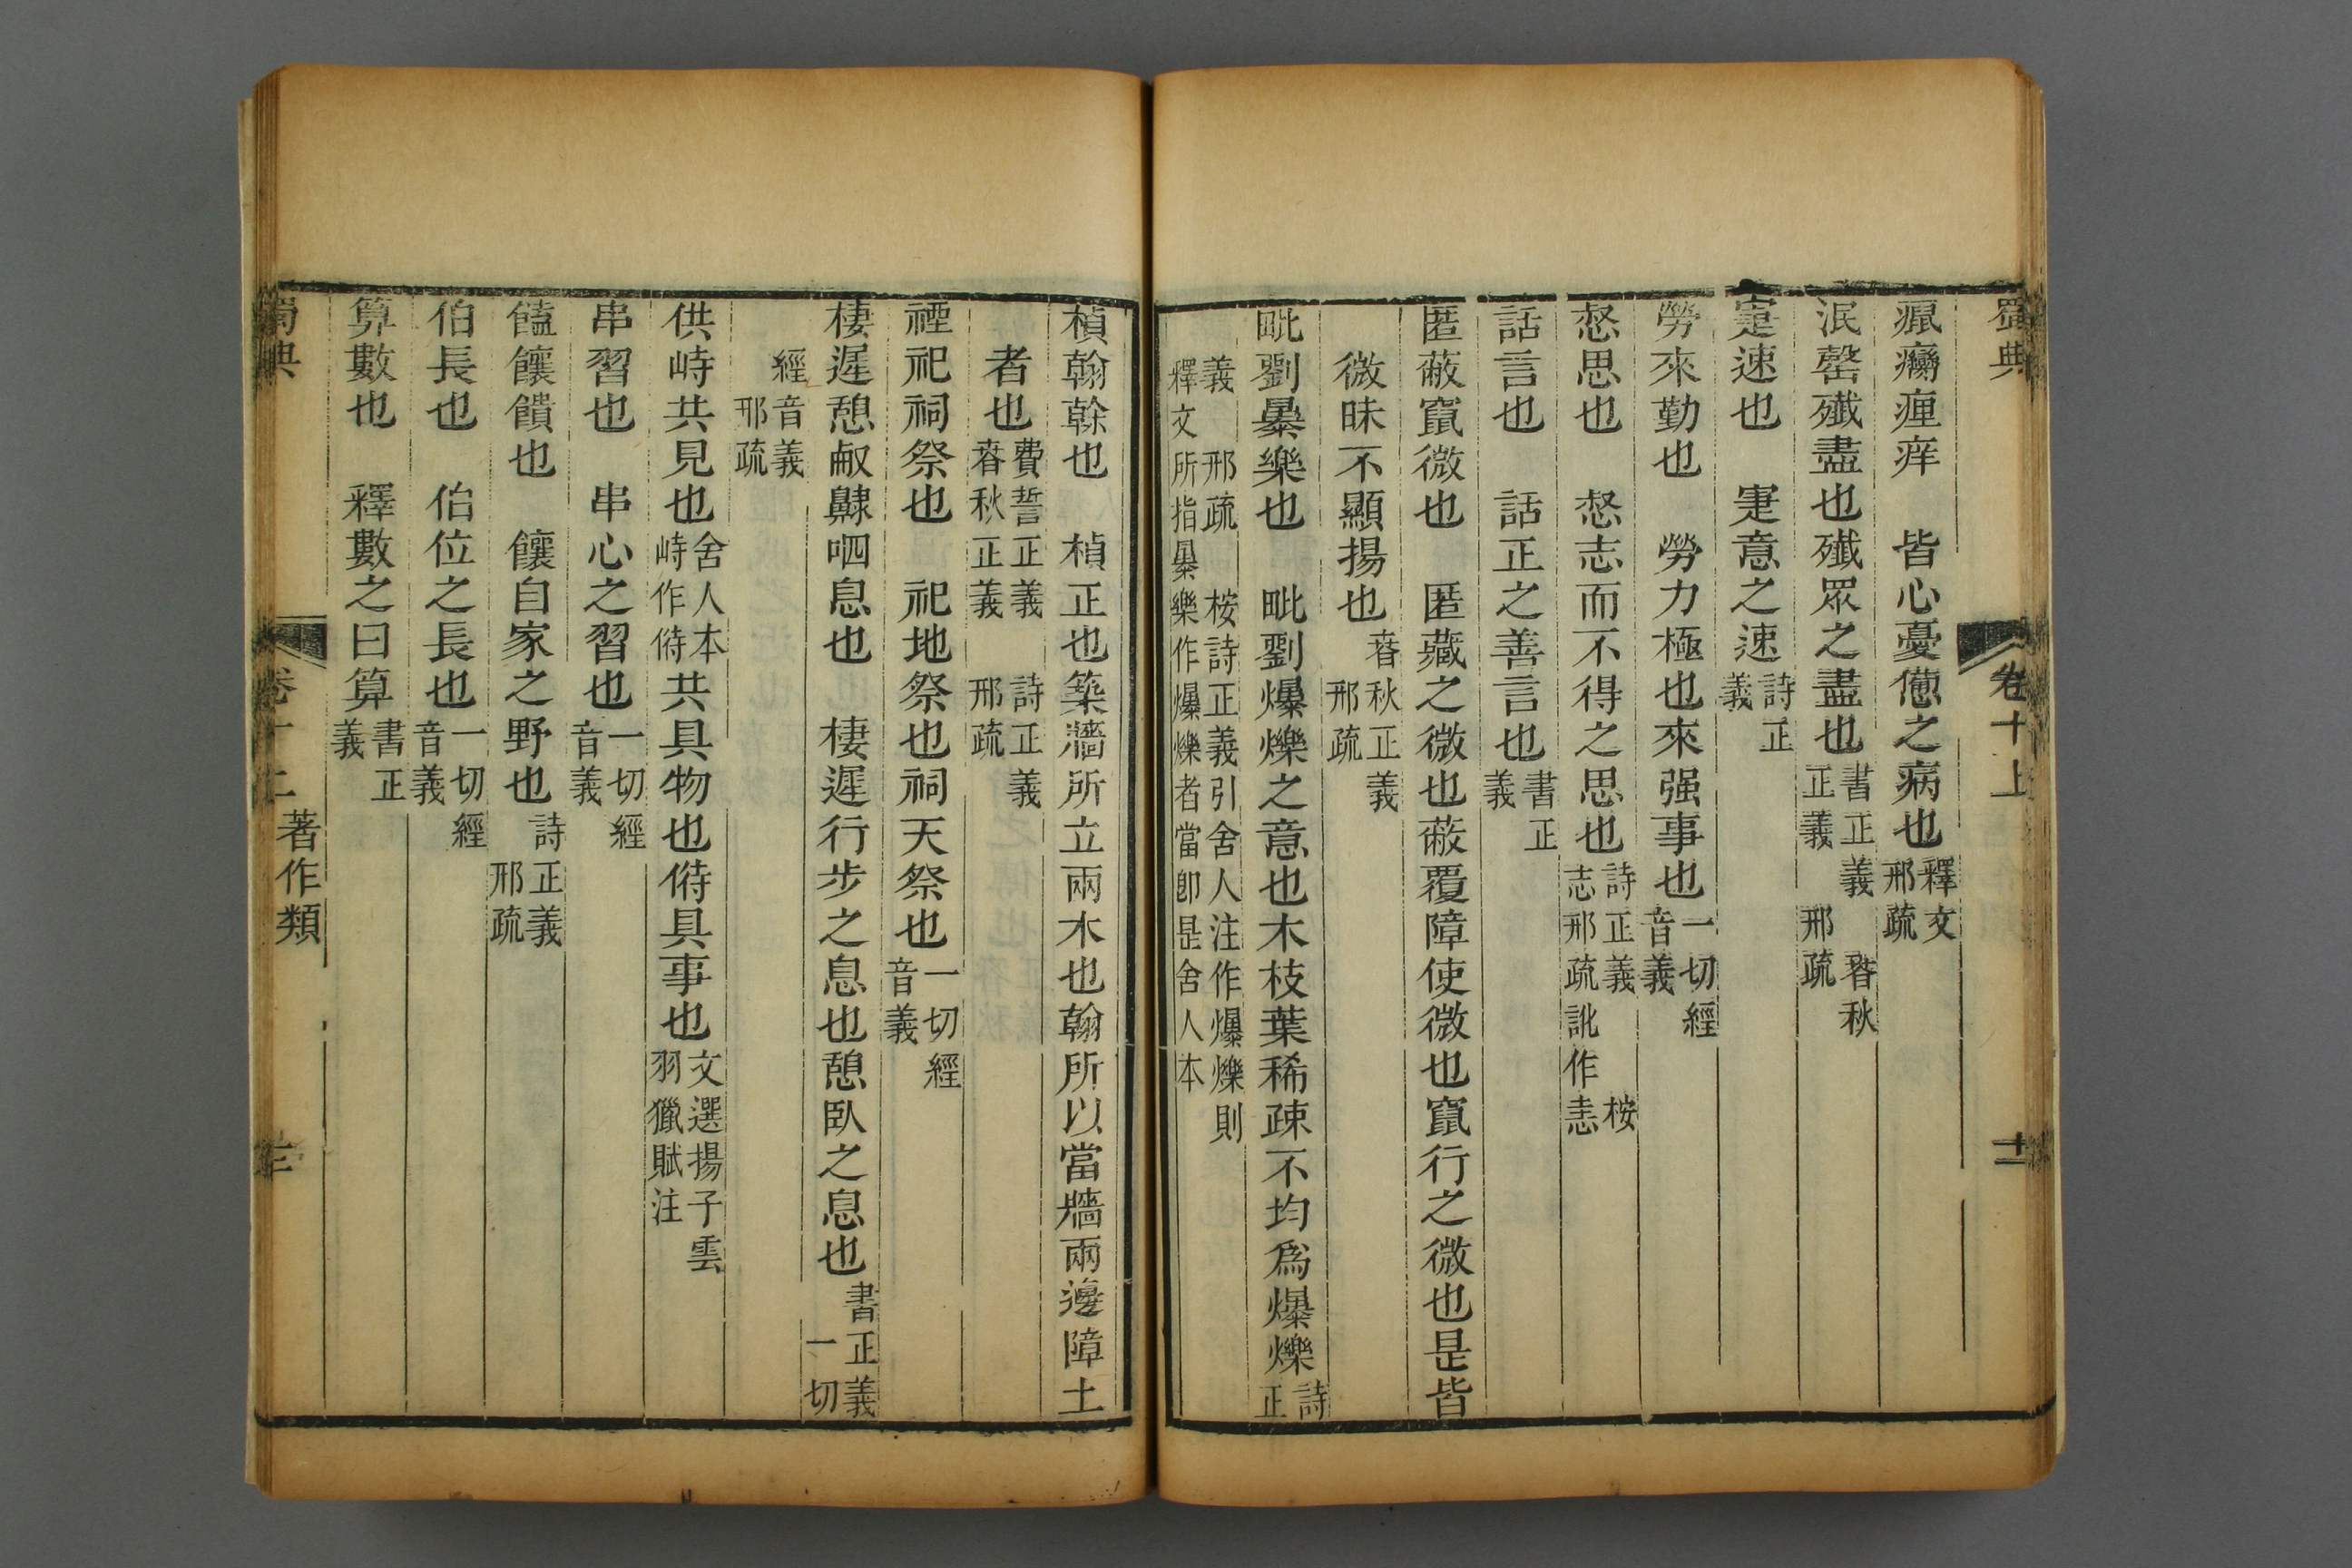 蜀典 卷十上 十二
瘋癵瘇痒 皆心憂憊之病也釋文邢疏
泯罄殲盡也殲眾之盡也書正義春秋正義邢疏
寁速也 寁意之速詩正義
勞來勤也 勞力極也來强事也一切經音義
惄思也 惄志而不得之思也詩正義 桉志邢疏訛作恚
話言也 話正之善言也書正義
匿蔽竄微也 匿藏之微也蔽覆障使微也竄行之微也是皆
微昧不顯揚也春秋正義邢疏
毗劉㬥樂也 毗劉爆爍之意也木枝葉稀疎不均爲爆爍詩正
義 邢疏 桉詩正義引舍人注作爆爍則釋文所指㬥樂作爆爍者當卽是舍人本
楨翰榦也 楨正也築牆所立兩木也翰所以當牆兩邊障土
者也費誓正義 詩正義春秋正義 邢疏
禋祀祠祭也 祀地祭也祠天祭也一切經音義
棲遲憩㱕齂呬息也 棲遲行步之息也憩臥之息也書正義一切
經音義邢疏
供峙共見也舍人本峙作偫共具物也偫具事也文選揚子雲羽獵賦注
串習也 串心之習也一切經音義
饁饟饋也 饟自家之野也詩正義邢疏
伯長也 伯位之長也一切經音義
算數也 釋數之曰算書正義
蜀典 卷十上 著作類